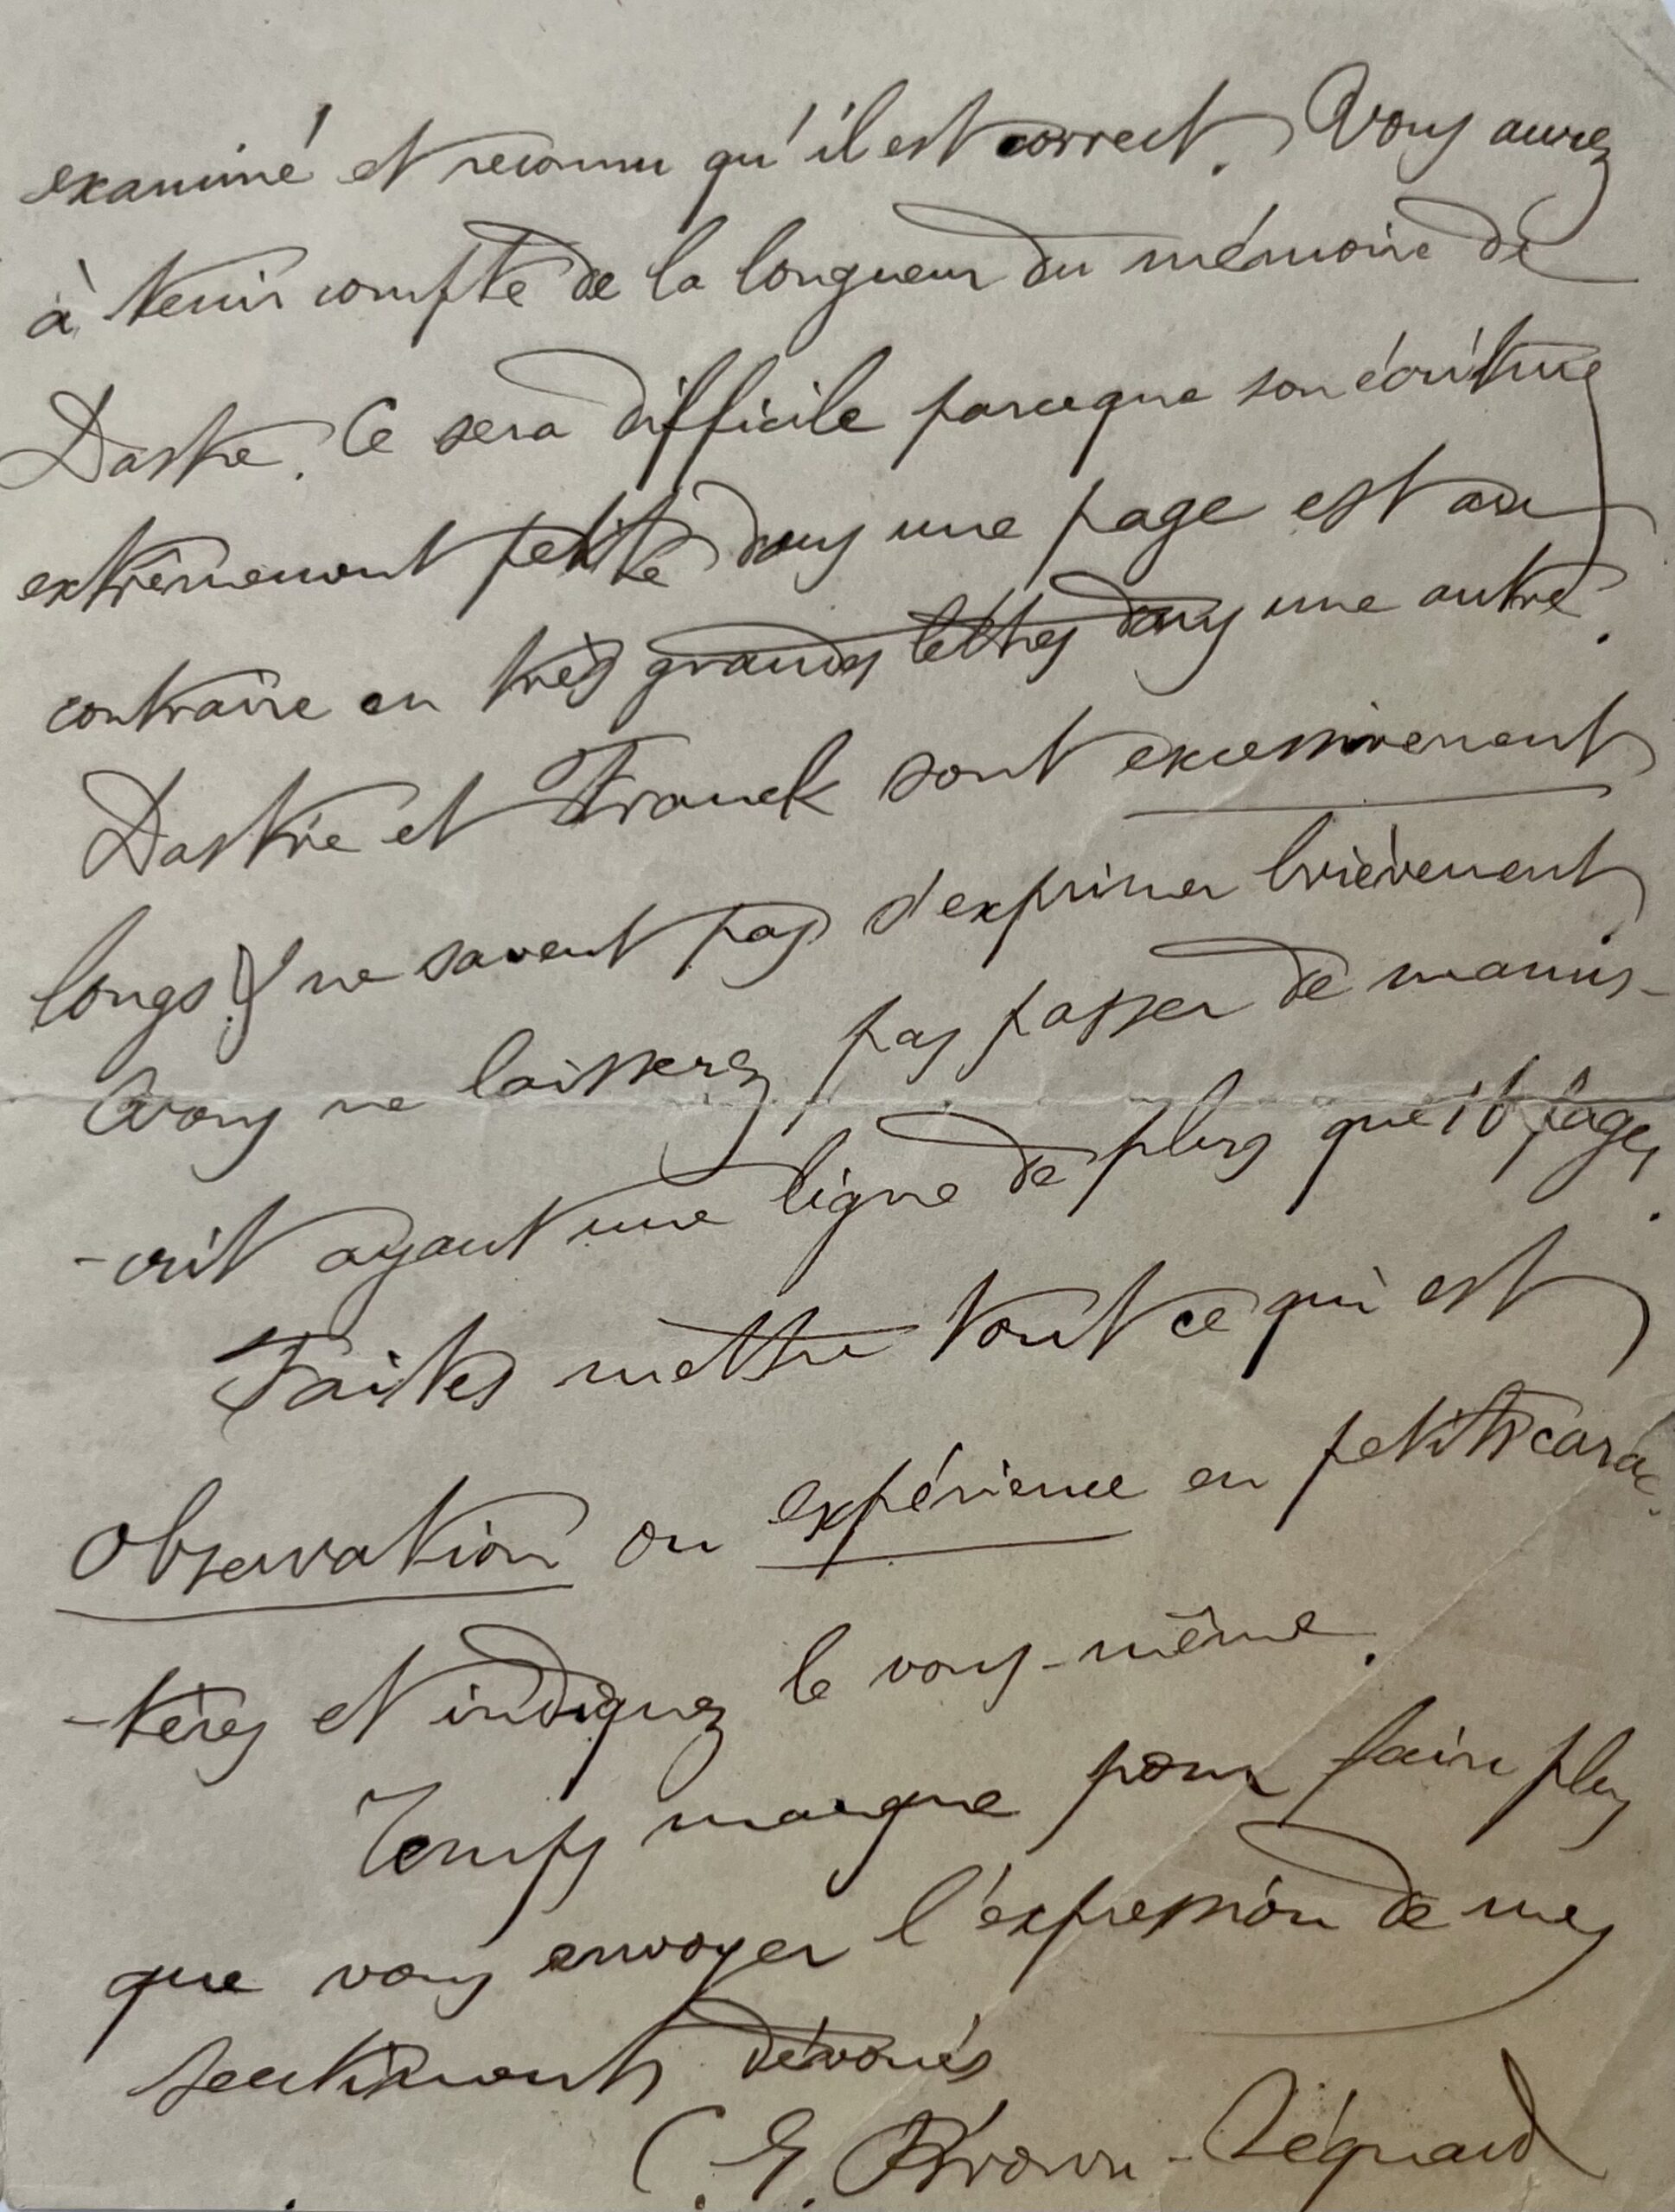 examiné et reconnu qu'il est correct. Vous aurez
à tenir compte de la longueur du mémoire de
Dastre. Ce sera difficile parceque son écriture
extrêmement petite dans une page est au
contraire en très grandes lettres dans une autre.
Dastre et Franck sont excessivement
longs & ne savent pas s'exprimer brièvement
Vous ne laisserez pas passer de manus-
-crit ayant une ligne de plus que 16 pages.
Faites mettre tout ce qui est
observation ou expérience en petits carac-
-tères et indiquez le vous-même.
Temps manque pour faire plus
que vous envoyer l'expression de mes
sentiments dévoués
C. E. Brown-Séquard